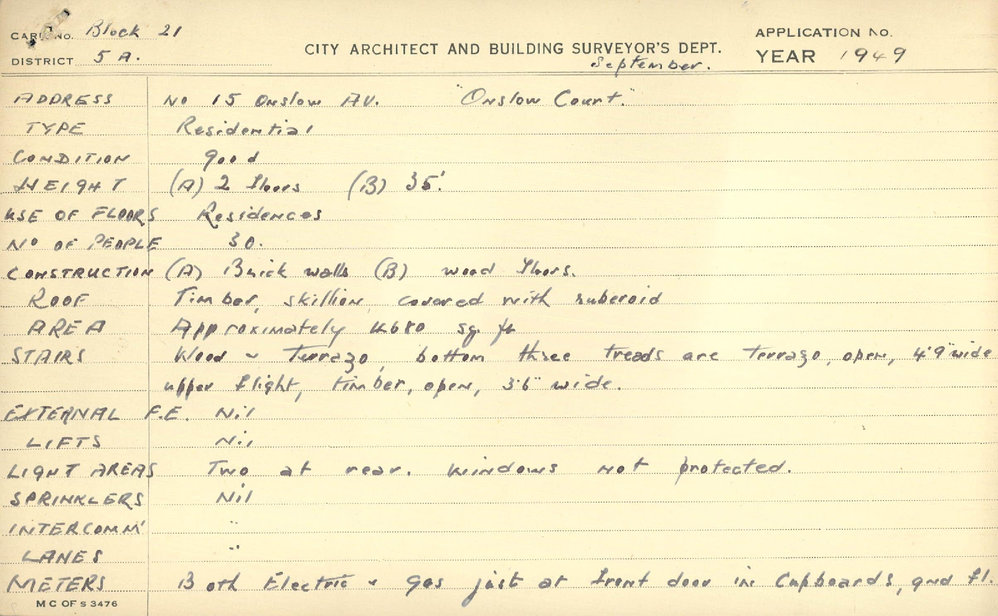 CARD No. Block 21
APPLICATION No.
DISTRICT 5 A.
CITY ARCHITECT AND BUILDING SURVEYOR'S DEPT.
YEAR 1949
September.
ADDRESS No 15 Onslow AV. "Onslow Court."
TYPE Residential
CONDITION good
HEIGHT (A) 2 floors (B) 35'.
USE OF FLOORS Residences
No OF PEOPLE 30.
CONSTRUCTION (A) Brick walls (B) wood floors.
ROOF Timber, skillion, covered with ruberoid
AREA Approximately 4680 sq. ft
STAIRS Wood & Terrazo, bottom three treads are terrazo, open, 4'9" wide
upper flight, timber, open, 3'6" wide.
EXTERNAL F.E. Nil
LIFTS Nil
LIGHT AREAS Two at rear. Windows not protected.
SPRINKLERS Nil
INTERCOMM' "
LANES "
METERS Both Electric & Gas just at front door in Cupboards, gnd fl.
M C OF S 3476